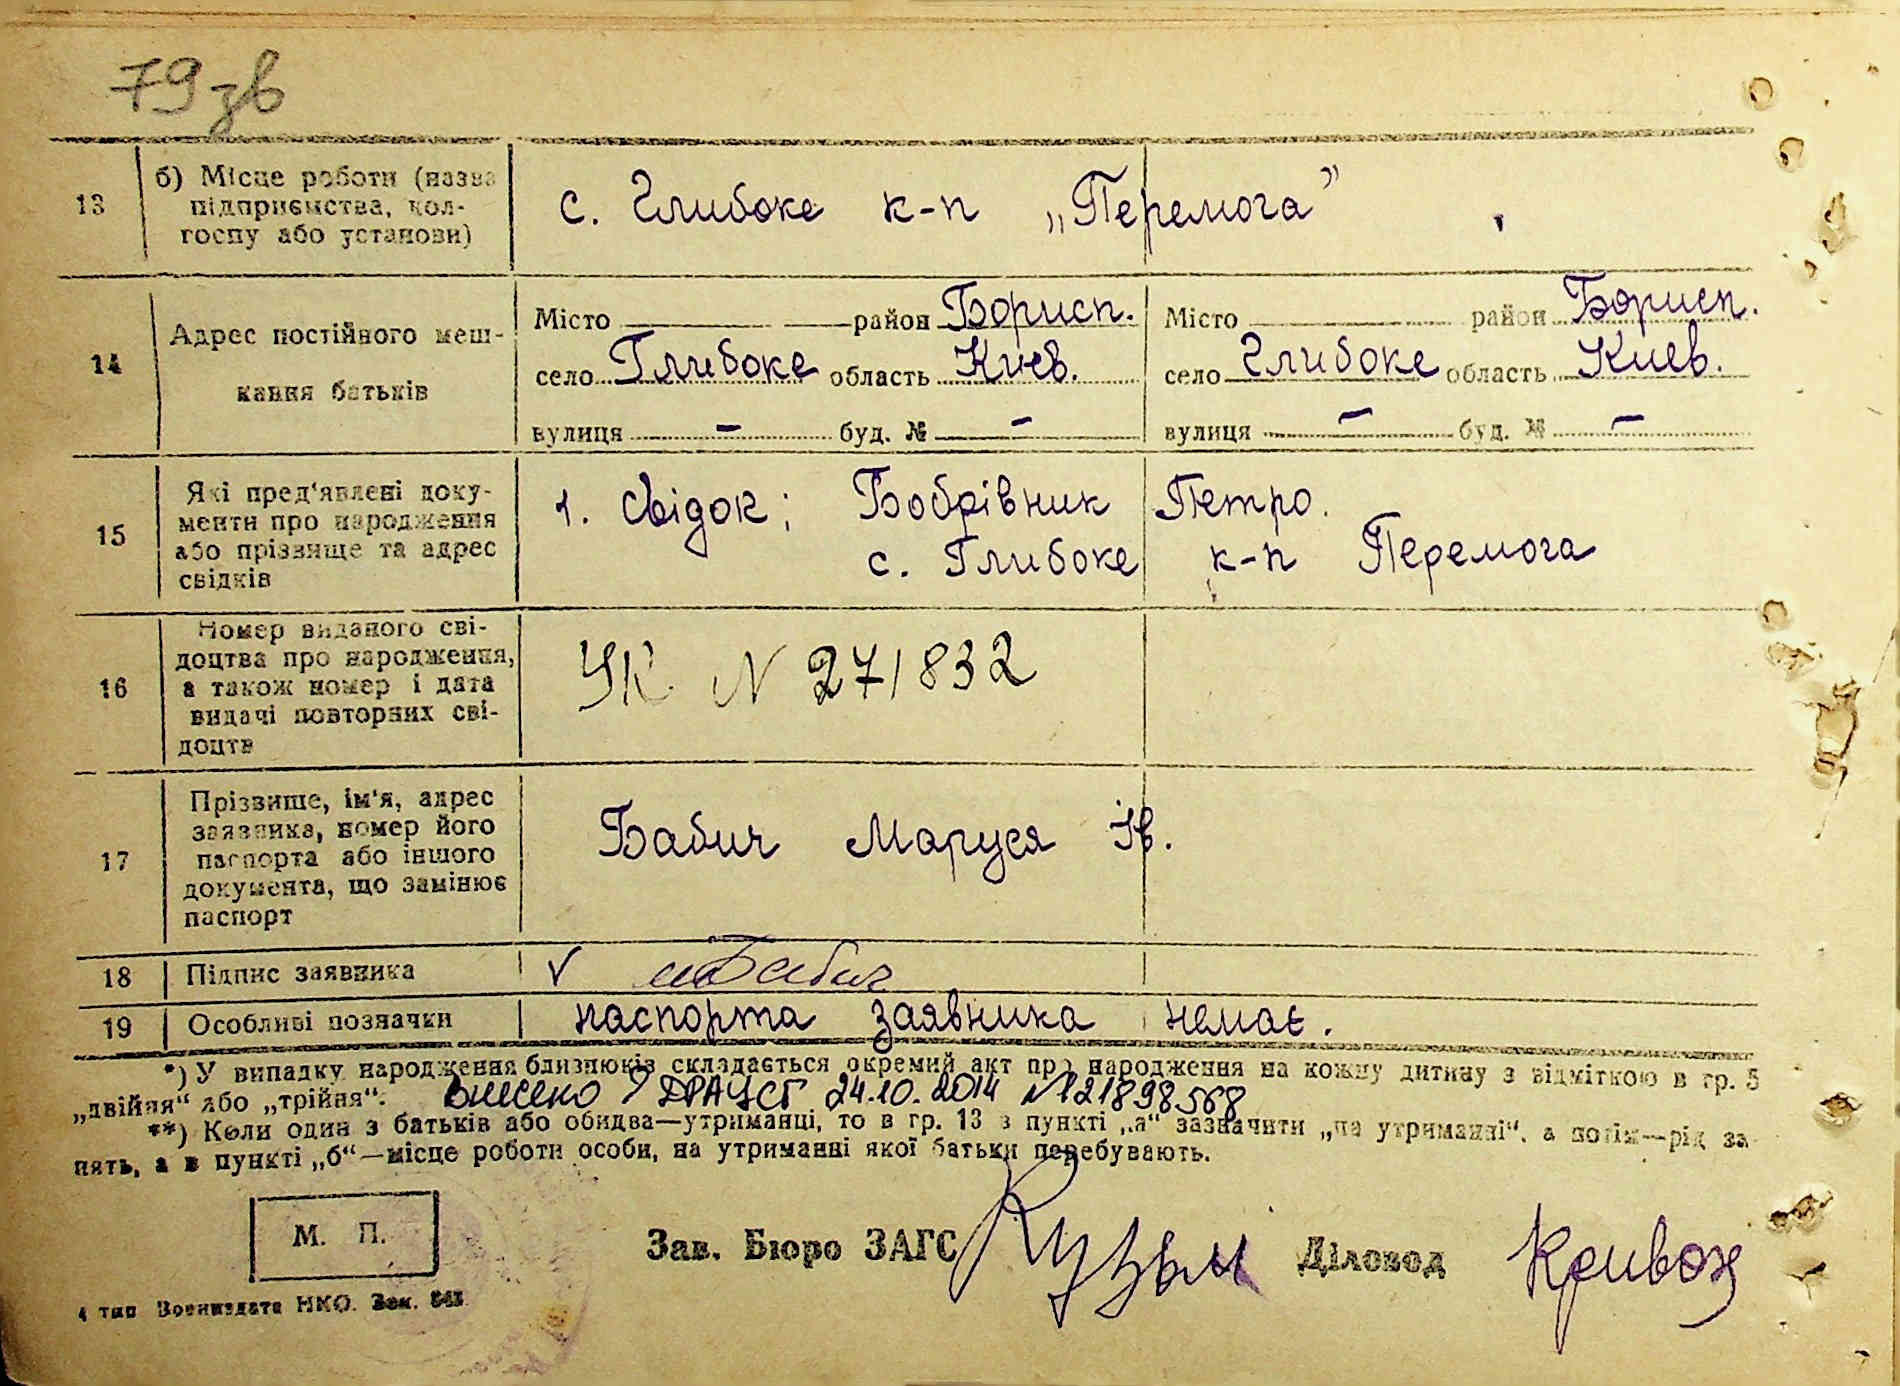 79 зв
13 б) Місце роботи (назва
підприємства, кол-
госпу або установи)
с. Глибоке к-п „Перемога”
14 Адрес постійного меш-
кання батьків
Місто район Борисп.
село Глибоке область Киев.
вулиця – буд. № –
Місто район Борисп.
село Глибоке область Киев.
вулиця – буд. № –
15 Які пред'явлені доку-
менти про народження
або прізвище та адрес
свідків
1. Свідок; Бобрівник Петро.
с. Глибоке к-п Перемога
16 Номер виданого сві-
доцтва про народження,
а також номер і дата
видачі повторних сві-
доцтв
УК N 271832
17 Прізвище, ім'я, адрес
заявника, номер його
паспорта або іншого
документа, що замінює
паспорт
Бабич Маруся Ів.
18 Підпис заявника
V Бабич
19 Особливі позначки
паспорта заявника немає.
*) У випадку народження близнюків складається окремий акт про народження на кожну дитину з відміткою в гр. 5
„двійня“ або „трійня“.
Внесено у ДРАЦСГ 24.10.2014 №121898568
**) Коли один з батьків або обидва—утриманці, то в гр. 13 в пункті „а“ зазначити „на утриманні“, а потім—рід за-
нять, а в пункті „б“—місце роботи особи, на утриманні якої батьки перебувають.
М. П.
Зав. Бюро ЗАГС
Діловод
4 тип Воениздата НКО. Зак.